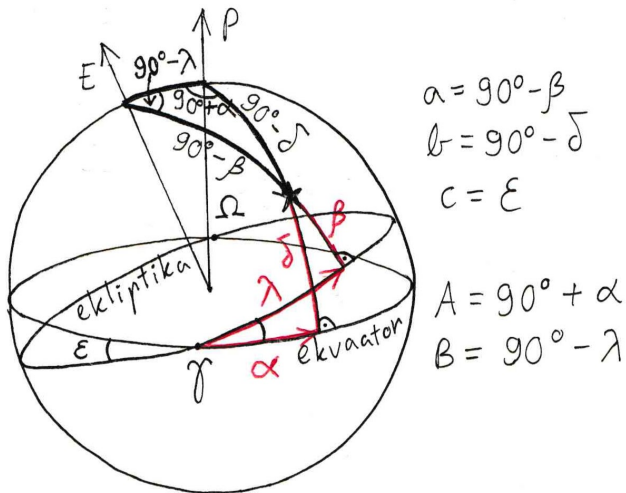 P
E
90°-λ
90°+α
90°-δ
90°-β
Ω
β
δ
λ
ekliptika
ε
ekvaator
γ
α
a = 90°-β
b = 90°-δ
c = ε
A = 90° + α
B = 90° - λ